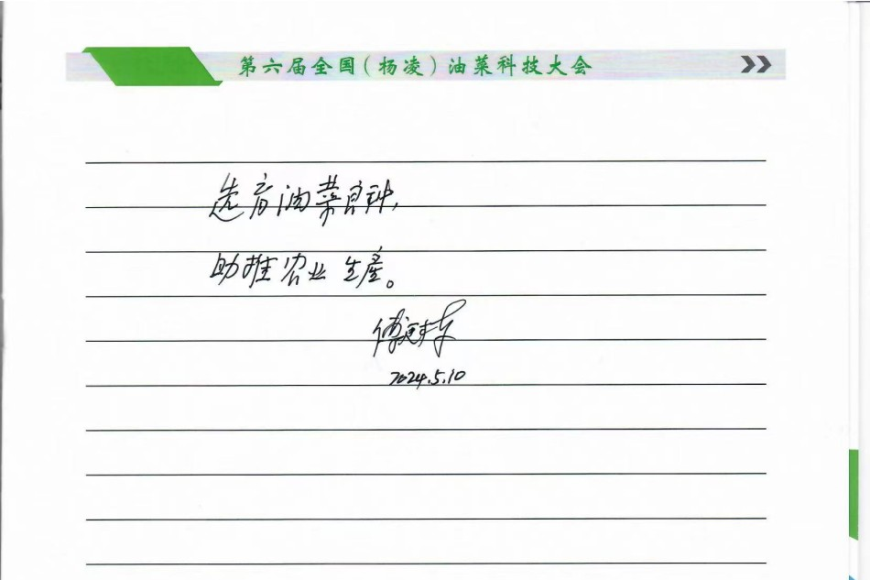 第六届全国(杨凌)油菜科技大会
选育油菜良种,
助推农业生产。
傅廷栋
2024.5.10